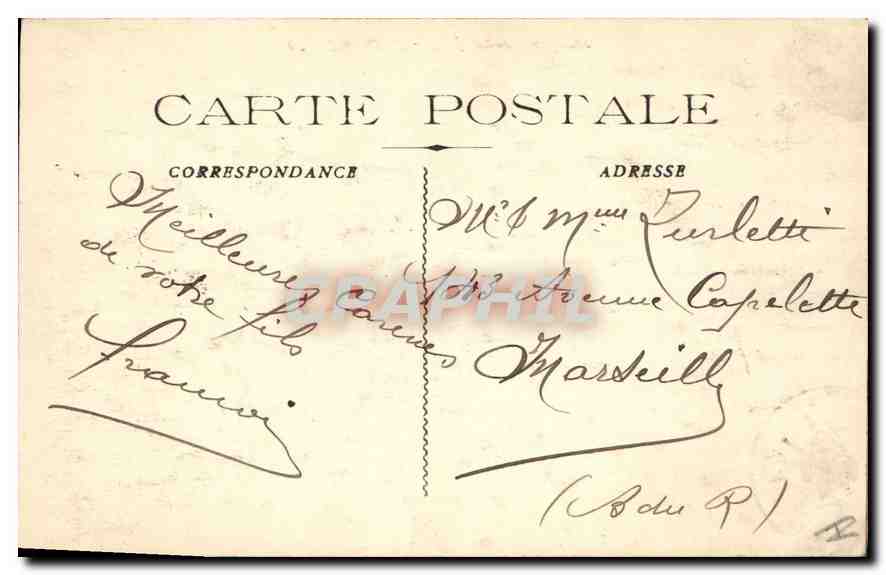 CARTE POSTALE
CORRESPONDANCE
Meilleures Caresses
de votre fils
François
ADRESSE
Mr & Mme Zurletti
143 Avenue Capelette
Marseille
(B du R)
CPAPHIL